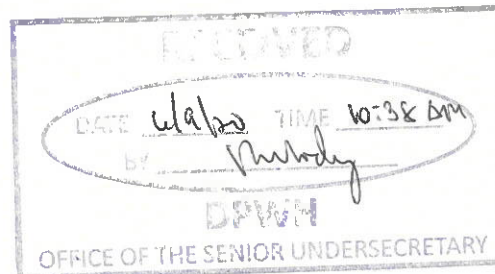 RECEIVED
DATE TIME 10:38 AM
BY
DPWH
OFFICE OF THE SENIOR UNDERSECRETARY